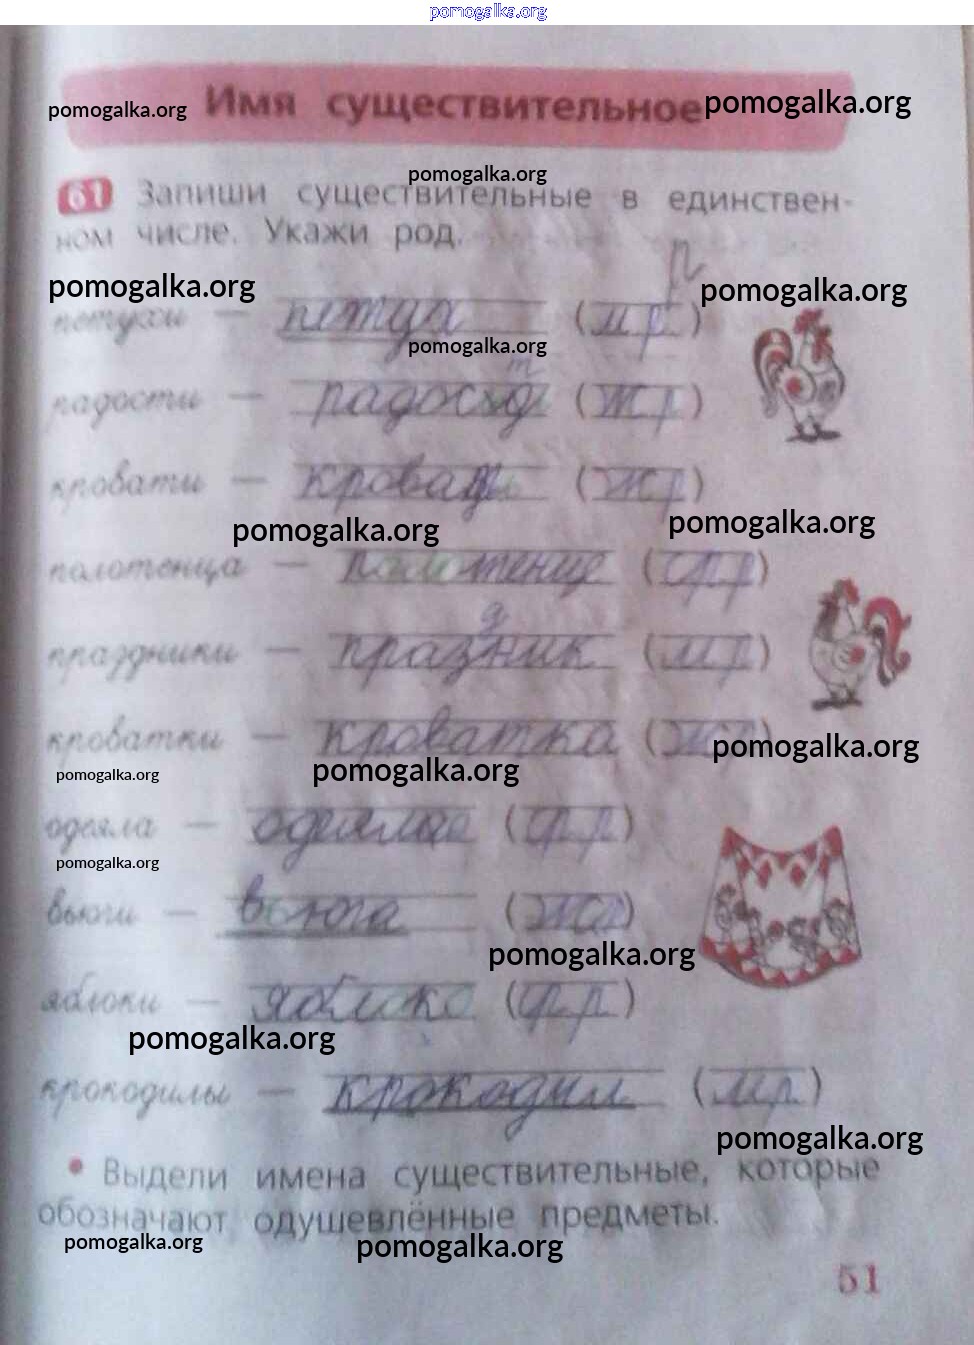 pomogalka.org
Имя существительное
pomogalka.org
pomogalka.org
pomogalka.org
61 Запиши существительные в единствен-
ном числе. Укажи род.
pomogalka.org
pomogalka.org
петухи — петух (м р)
pomogalka.org
т
радости — (ж р)
кровати — (ж р)
pomogalka.org
pomogalka.org
полотенца — полотенце (ср р)
д
праздники — празник (м р)
кроватки — кроватка (ж р)
pomogalka.org
pomogalka.org
pomogalka.org
одеяла — (ср р)
pomogalka.org
вьюги — вьюга (ж р)
pomogalka.org
яблоки — яблоко (ср р)
pomogalka.org
крокодилы — крокодил (м р)
pomogalka.org
• Выдели имена существительные, которые
обозначают одушевлённые предметы.
pomogalka.org
pomogalka.org
51